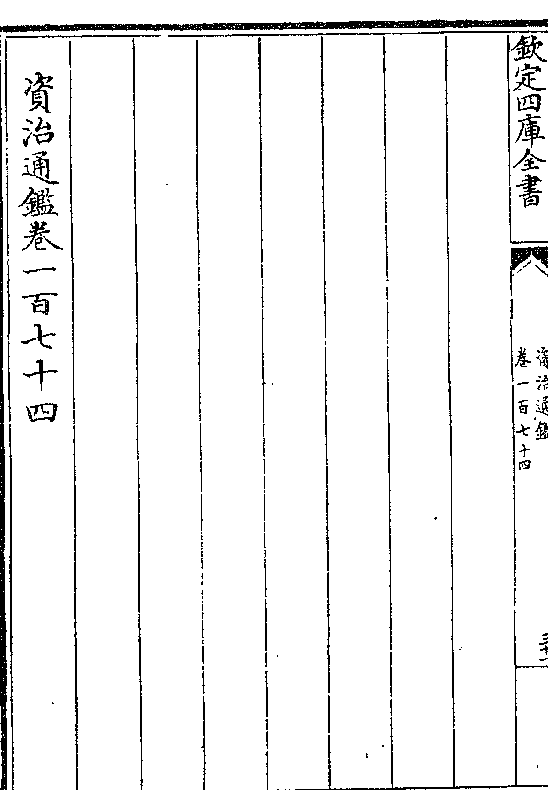 欽定四庫全書
資治通鑑
卷一百七十四
資治通鑑卷一百七十四